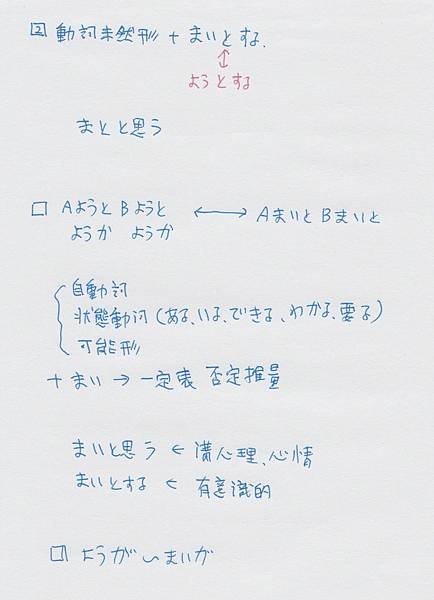 ② 動詞未然形 + まいとする.
↕
ようとする
まとと思う
□ AようとBようと ←→ AまいとBまいと
ようか ようか
自動詞
状態動詞(ある、いる、できる、わかる、要る)
可能形
+ まい → 一定表 否定推量
まいと思う ← 講心理、心情
まいとする ← 有意識的
□ ようが〜まいが